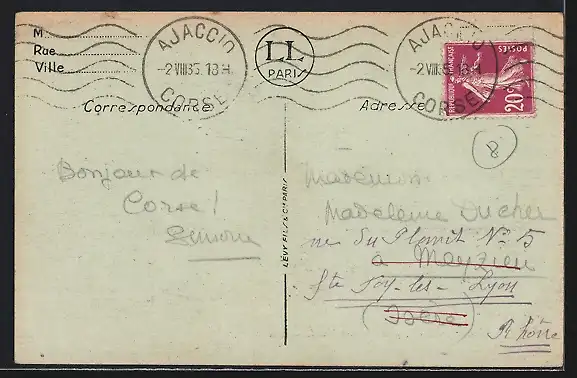 M.
Rue
Ville
AJACCIO
-2 VIII 35. 18 H
CORSE
LL
PARIS
AJACCIO
-2 VIII 35 18 H
CORSE
POSTES
REPUBLIQUE FRANÇAISE
20c
Correspondance
Adresse
8
Bonjour de
Corse!
Simone
LÉVY FILS & Cie PARIS
Madeleine Ducher
rue du Planit No. 5
à Meyzieu
Ste Foy-les-Lyon
(Isère)
Rhône